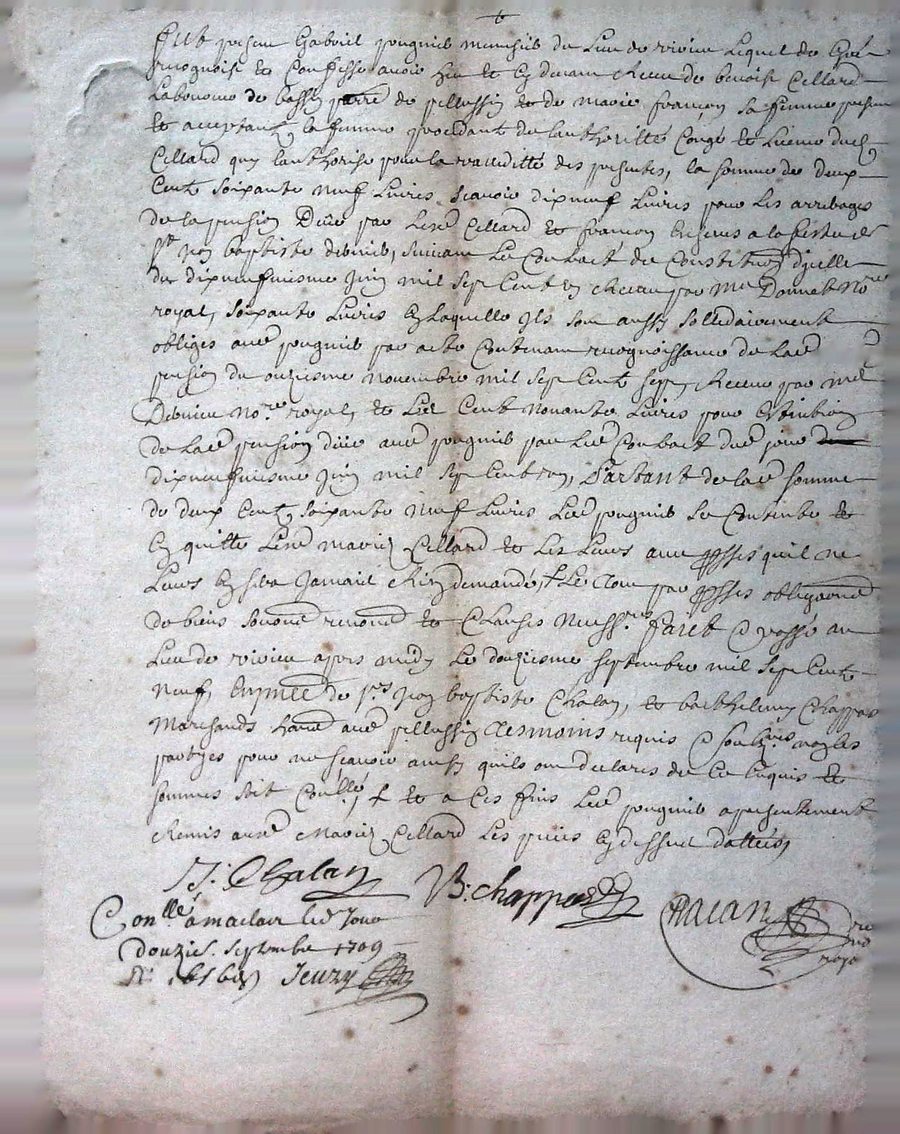 Fut present Gabriel pougnib menusib du Lieu de virieu Lequel de Gré
recognoist et Confesse avoir heu et Cy devant Receu de benoist Cellard
Laboureur de bassin parrē de pellussin et de marie françon sa femme present
et acceptant, la femme procedant de lauthorité Congé et Licence dud
Cellard quy lauthorise pour la validdité des presentes, la somme de deux
Cent soixante neuf Livres scavoir dixneuf Livres pour les arrerages
de la pension Deüe par lesd Cellard et françon Escheus a la feste de
st Jean baptiste dernier, suivant Le Contract de Constitution d'icelle
du dixneufvisme Juin mil sept Cent Receu par me Donnet Nore
royal, soixante Livres En Laquelle Ils sont aussy sollidairement
obligés aud pougnib par acte Contenant recognoissance de lad
pension du onziesme novembre mil sept Cent sept, Receue par me
Devirieu nore royal, et Led Cent nonante Livres pour
de lad pension deüe aud pougnib par led Contract dud jour
dixneufvisme Juin mil sept Cent Partant de lad somme
de deux Cent, soixante neuf Livres Led pougnib se Contente et
En quitte Lesd mariés Cellard et les Leurs avec ppsses quil ne
Leurs En sera Jamais Rien demandé, Le tout par ppsses obligaōn
de biens soubmē renonē et Clauses necessres Faict & passé au
Lieu de virieu apres midy Le douziesme septembre mil sept Cent
neuf, En pncē de srs Jean baptiste Chalan, et barthelemy Chappas
Marchands hants aud pellussin tesmoins requis & soubznés non les
partyes pour ne scavoir ainsy quils ont declarés de Ce Enquis et
sommés soit Conllé, et a Ces fins Led pougnib a presentement
Remis aux Mariés Cellard les pieces Cy dessus dattées,
J. Chalan B. Chappas
Conllé a maclair led Jour
douzie. septembre 1709
Jeury